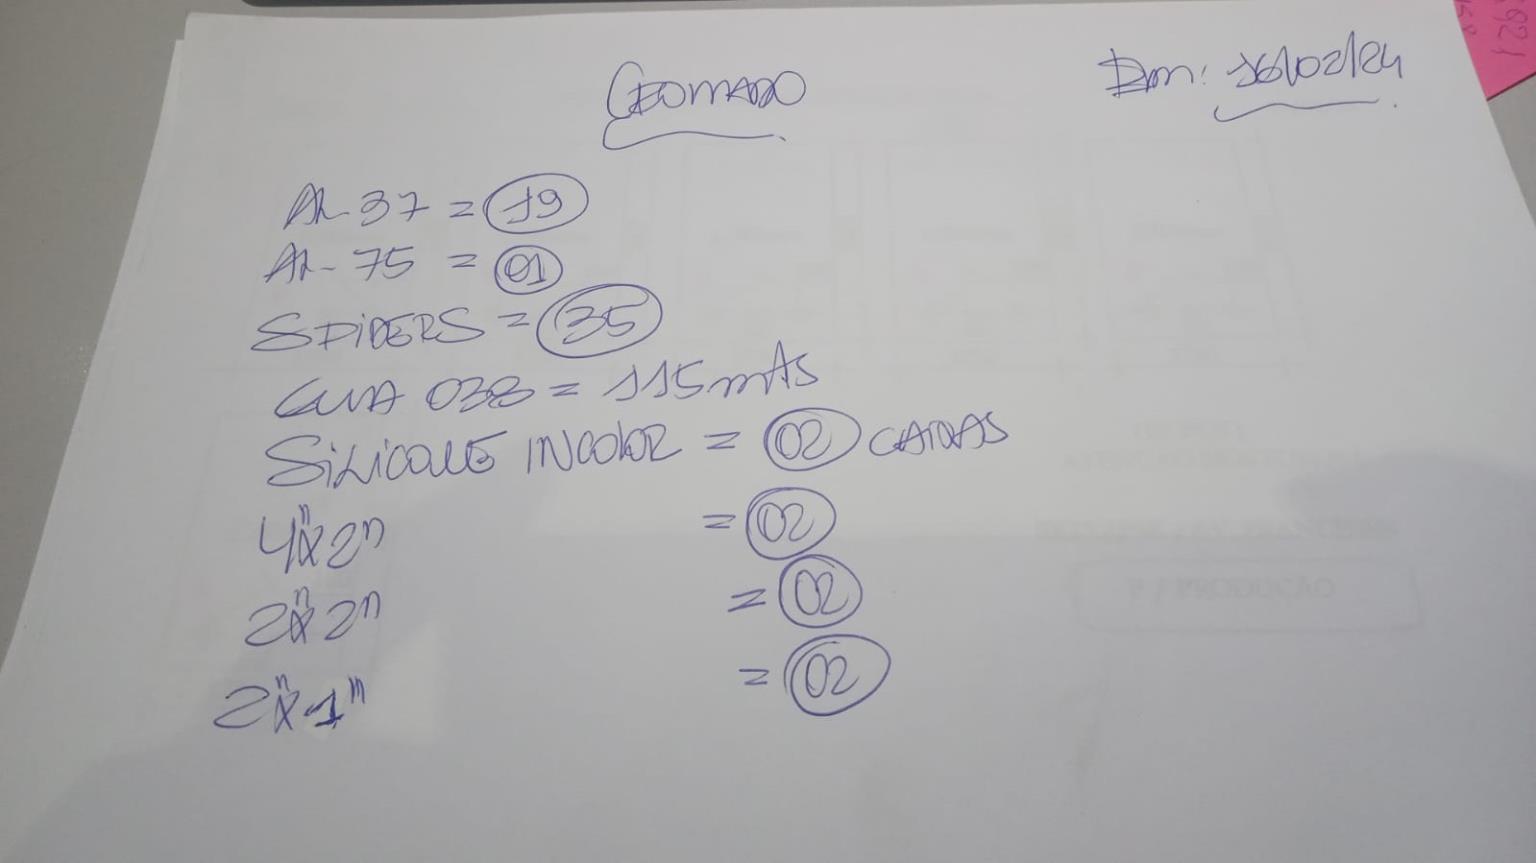 CROMADO
Em: 16/02/24
AL-37 = 19
AL-75 = 01
SPIDERS = 35
GUIA 038 = 115 mts
SILICONE INCOLOR = 02 CAIXAS
4"x2" = 02
2"x2" = 02
2"x1" = 02
PRODUÇÃO